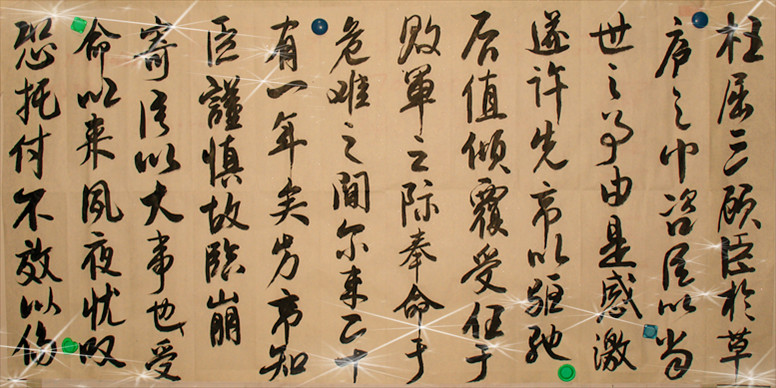 枉屈三顾臣於草
庐之中咨臣以当
世之事由是感激
遂许先帝以驱驰
后值倾覆受任于
败军之际奉命于
危难之间尔来二十
有一年矣先帝知
臣谨慎故临崩
寄臣以大事也受
命以来夙夜忧叹
恐托付不效以伤